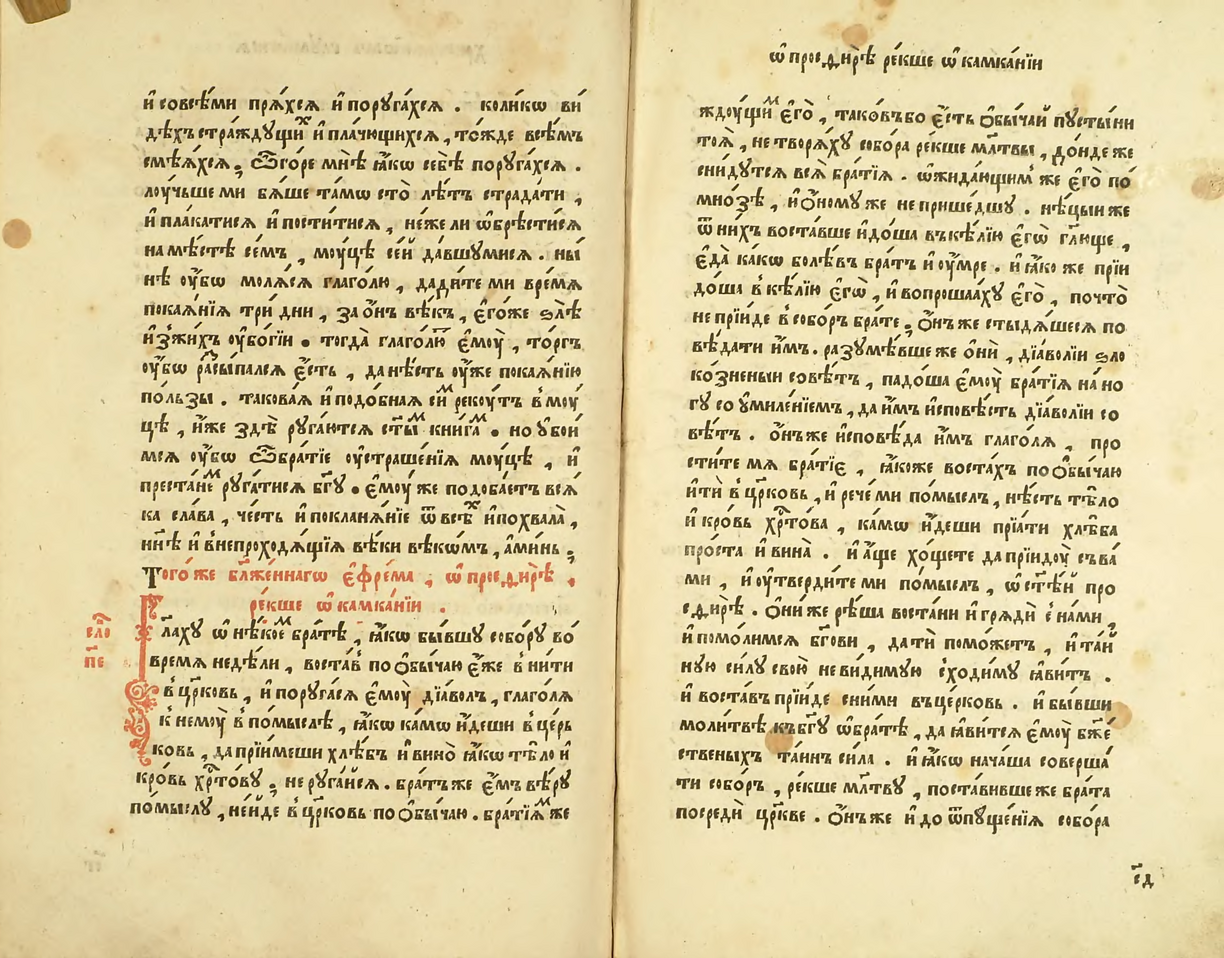 и҆совсѣ́ми прѧ́хсѧ и҆порꙋга́хсѧ . коли́кѡ ви́
дѣхъ стра́ждꙋщиⷯ и҆пла́чющихсѧ , то́жде всѣ́мъ
смѣѧ́хсѧ , ѽго́ре мнѣ̀ ꙗ҆́кѡ себѣ̀ порꙋга́хсѧ .
лоу́чьше ми бѧ́ше та́мѡ сто̀ лѣ́тъ страда́ти ,
и҆пла́катисѧ и҆пости́тисѧ , не́же ли ѡ҆брѣсти́сѧ
намѣ́стѣ се́мъ , моу́цѣ се́й да́вшꙋмисѧ . ны́
нѣ оу҆́бѡ молѧ́сѧ глаго́лю , дади́те ми вре́мѧ
покаѧ́нїѧ трѝ дни , за ѻ҆́нъ вѣ́къ , є҆го́же ѕлѣ̀
и҆зжи́хъ оу҆бо́гїи . тогда̀ глаго́лю є҆моу̀ , то́ргъ
оу҆́бѡ разсы́пался є҆́сть , да нѣ́сть оу҆́же покаѧ́нїю
по́льзы . такова́ѧ и҆подо́бнаѧ си́ⷨ реко́утъ в̾моу́
цѣ , и҆́же здѣ̀ рꙋга́ютсѧ ст҃ыⷨ кни́гаⷨ . но оу҆бои́
мсѧ оу҆́бѡ ѽбра́тїе оу҆страше́нїѧ моу́цѣ , и҆
преста́неⷨ рꙋга́тисѧ бг҃ꙋ . є҆моу́ же подоба́етъ всѧ́
ка сла́ва , че́сть и҆покланѧ́нїе ѿ всѣⷯ и҆похвала̀ ,
нн҃ѣ и҆ в̾непроходѧ́щїѧ вѣ́ки вѣкѡ́мъ , а҆ми́нь .
Того́ же бл҃же́ннагѡ є҆фре́ма , ѡ҆ просфи́рѣ ,
ре́кше ѡ҆ камка́нїи .
сло́
пе
Глаху ѡ҆ нѣ́коеⷨ бра́тѣ , ꙗ҆́кѡ бы́вшꙋ собо́рꙋ во
вре́мѧ недѣ́ли , воста́въ по ѻ҆бы́чаю є҆́же в̾ни́ти
в̾цр҃ковь , и҆порꙋга́сѧ є҆моу̀ дїа́волъ , глаго́лѧ
к̾немоу̀ в̾по́мыслѣ , ꙗ҆́кѡ ка́мѡ и҆́деши в̾це́рь
ковь , да прїи́меши хлѣ́бъ и҆вино̀ ꙗ҆́кѡ тѣ́ло и҆
кро́вь хрⷭ҇то́вꙋ , не рꙋга́йсѧ . бра́тъ же є҆́мъ вѣ́рꙋ
по́мыслꙋ , не и҆́де в̾цр҃ковь по ѻ҆бы́чаю . бра́тїѧⷨ же
ѡ҆ просфи́рѣ ре́кше ѡ҆ камка́нїи
ждоу́щиⷨ є҆го̀ , тако́въ бо є҆́сть ѻ҆бы́чай пꙋсты́ни
тоѧ̀ , не творѧ́хꙋ собо́ра ре́кше мл҃твы , до́нде же
сни́дꙋтсѧ всѧ̀ бра́тїѧ . ѡ҆жида́ющим же є҆го̀ по́
мно́зѣ , и҆ ѻ҆́номꙋ же не прише́дшꙋ . нѣ́цыи же
ѿ ни́хъ воста́вше и҆до́ша въ кѣ́лїю є҆гѡ̀ гл҃юще ,
є҆да̀ ка́кѡ болѣ́въ бра́тъ и҆ оу҆́мре . и҆ ꙗ҆́ко же прїи
до́ша в̾кѣ́лїю є҆гѡ̀ , и҆ вопроша́ахꙋ є҆го̀ , почто̀
не прїи́де в̾собо́ръ бра́те , ѻ҆́нъ же стыдѧ́шесѧ по
вѣ́дати и҆́мъ . разꙋмѣ́вше же ѻ҆нѝ , дїа́волїи ѕло
ко́зненыи совѣ́тъ , падо́ша є҆моу̀ бра́тїѧ на но
гꙋ со ꙋмиле́нїемъ , да и҆́мъ и҆сповѣ́сть дїа́волїи со
вѣ́тъ . ѻ҆́нъ же и҆сповѣ́да и҆́мъ глаго́лѧ , про
сти́те мѧ бра́тїє , ꙗ҆́коже воста́хъ по ѻ҆бы́чаю
и҆тѝ в̾цр҃ковь , и҆ рече́ ми по́мыслъ , нѣ́сть тѣ́ло
и҆ кро́вь хрⷭ҇то́ва , ка́мѡ и҆́деши прїа́ти хлѣ́ба
про́ста и҆ вина̀ . и҆ а҆́ще хо́щете да прїидоу̀ съ ва́
ми , и҆ оу҆тверди́те ми по́мыслъ , ѡ҆ ст҃ѣ́й про
сфи́рѣ . ѻ҆ни́ же рѣ́ша воста́ни и҆ грѧдѝ с̾на́ми ,
и҆ помо́лимсѧ бг҃ови , да тѝ помо́жетъ , и҆ та́и
нꙋю си́лꙋ свою̀ неви́димꙋю сходи́мꙋ ꙗ҆ви́тъ .
и҆ воста́въ прїи́де сни́ми въ це́рковь . и҆ бы́вши
моли́твѣ къ бг҃ꙋ ѡ҆бра́тѣ , да ꙗ҆ви́тсѧ є҆моу̀ бж҃е́
ственыхъ та́инъ си́ла . и҆ ꙗ҆́кѡ нача́ша соверша́
ти собо́ръ , ре́кше мл҃твꙋ , поста́вивше же бра́та
посредѝ цр҃кве . ѻ҆́нъ же и҆ до ѿпꙋще́нїѧ собо́ра
с҃д